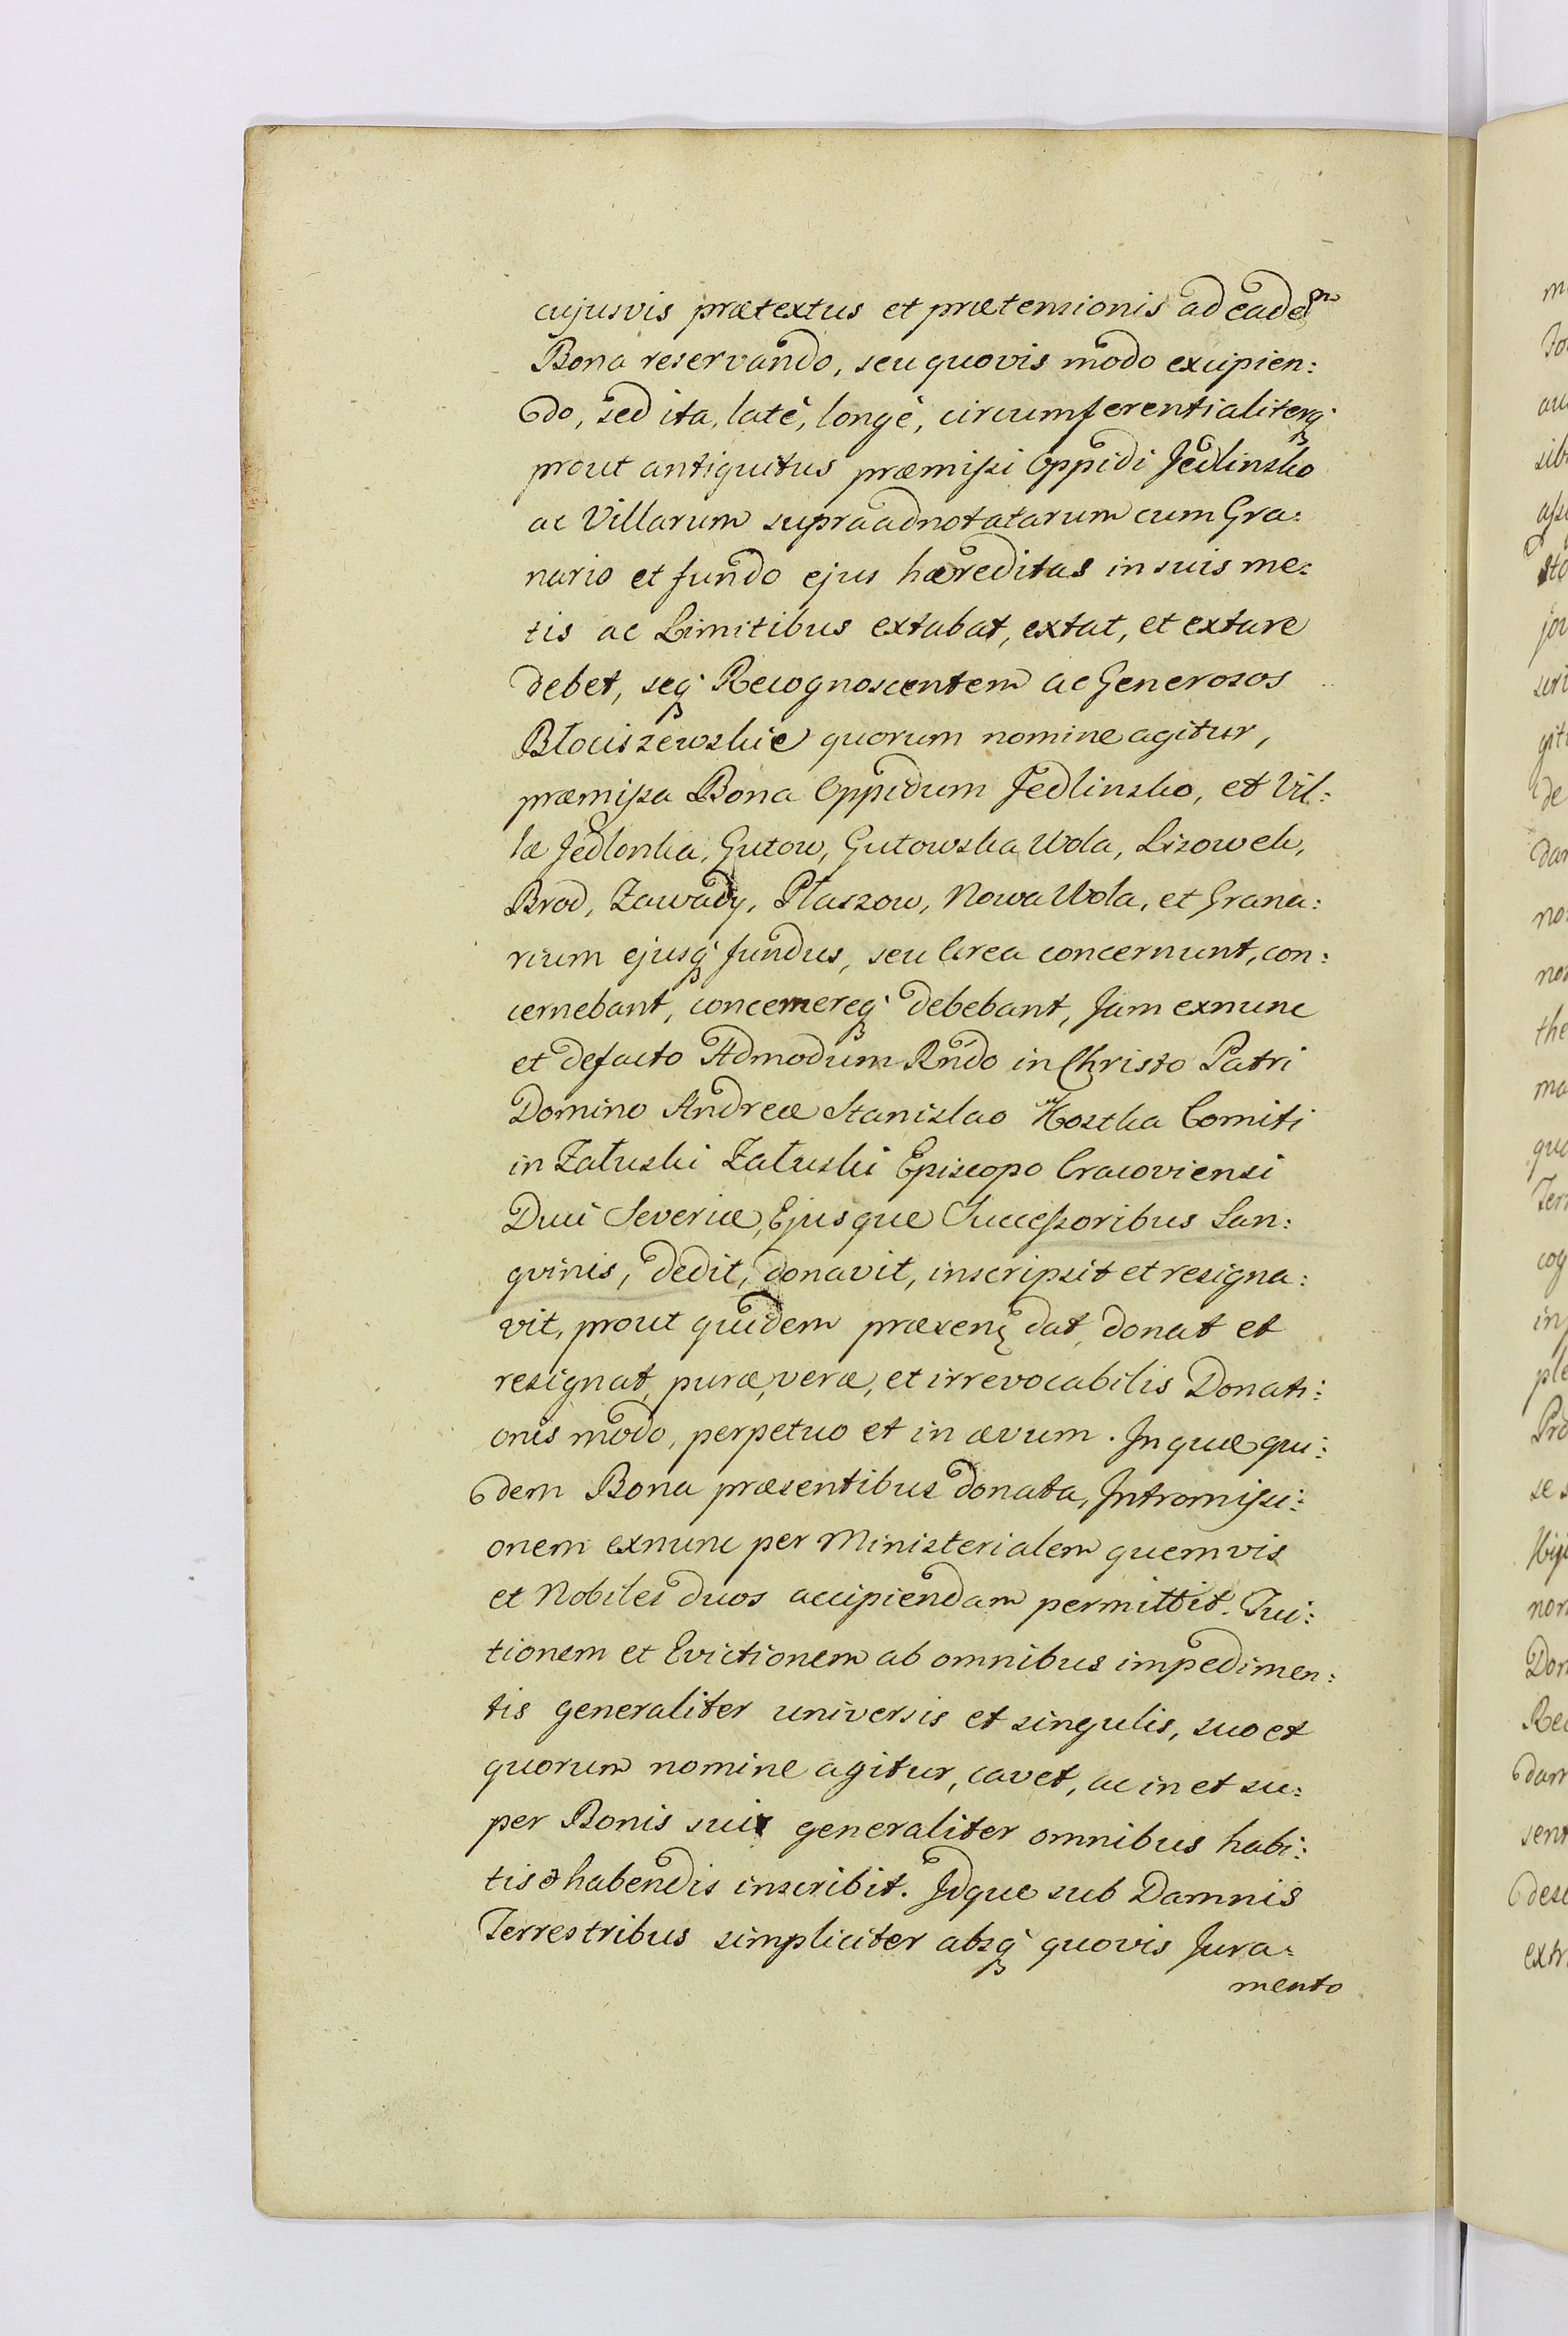 cujusvis prætextus et prætensionis ad eadem
Bona reservando, seu quovis modo excipien:
do, sed ita, latè, longè, circumferentialiterq;
prout antiquitus præmissi Oppidi Jedlinsko
ac Villarum supraadnotatarum cum Gra:
nario et fundo ejus hæreditas in suis me:
tis ac Limitibus extabat, extat, et extare
debet, seq; Recognoscentem ac Generosos
Błociszewskie quorum nomine agitur,
præmissa Bona Oppidum Jedlinsko, et Vil:
læ Jedlonka, Gutow, Gutowska Wola, Lisowek,
Brod, Zawady, Płaszow, Nowa Wola, et Grana:
rium ejusq; fundus, seu Area concernunt, con:
cernebant, concernereq; debebant, Jam exnunc
et defacto Admodum Rńdo in Christo Patri
Domino Andreæ Stanislao Kostka Comiti
in Załuski Załuski Episcopo Cracoviensi
Duci Severiæ, Ejusque Successoribus San:
gvinis, dedit, donavit, inscripsit et resigna:
vit, prout quidem præsenę dat, donat et
resignat, puræ, veræ, et irrevocabilis Donati:
onis modo, perpetuo et in ævum. In quæ qui:
dem Bona præsentibus donata, Intromissi:
onem exnunc per Ministerialem quemvis
et Nobiles duos accipiendam permittit. Tui:
tionem et Evictionem ab omnibus impedimen:
tis generaliter universis et singulis, suo et
quorum nomine agitur, cavet, ac in et su:
per Bonis suis generaliter omnibus habi:
tis & habendis inscribit. Idque sub Damnis
Terrestribus simpliciter absq; quovis Jura:
mento